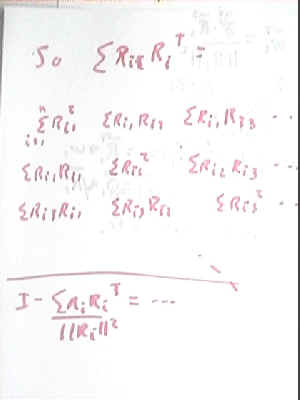 So ΣRi Ri^T =
n Σ i=1 Ri1^2 ΣRi1 Ri2 ΣRi1 Ri3 ...
ΣRi2 Ri1 ΣRi2^2 ΣRi2 Ri3 ...
ΣRi3 Ri1 ΣRi3 Ri2 ΣRi3^2 ...
I - ΣRiRi^T = ...
||Ri||^2